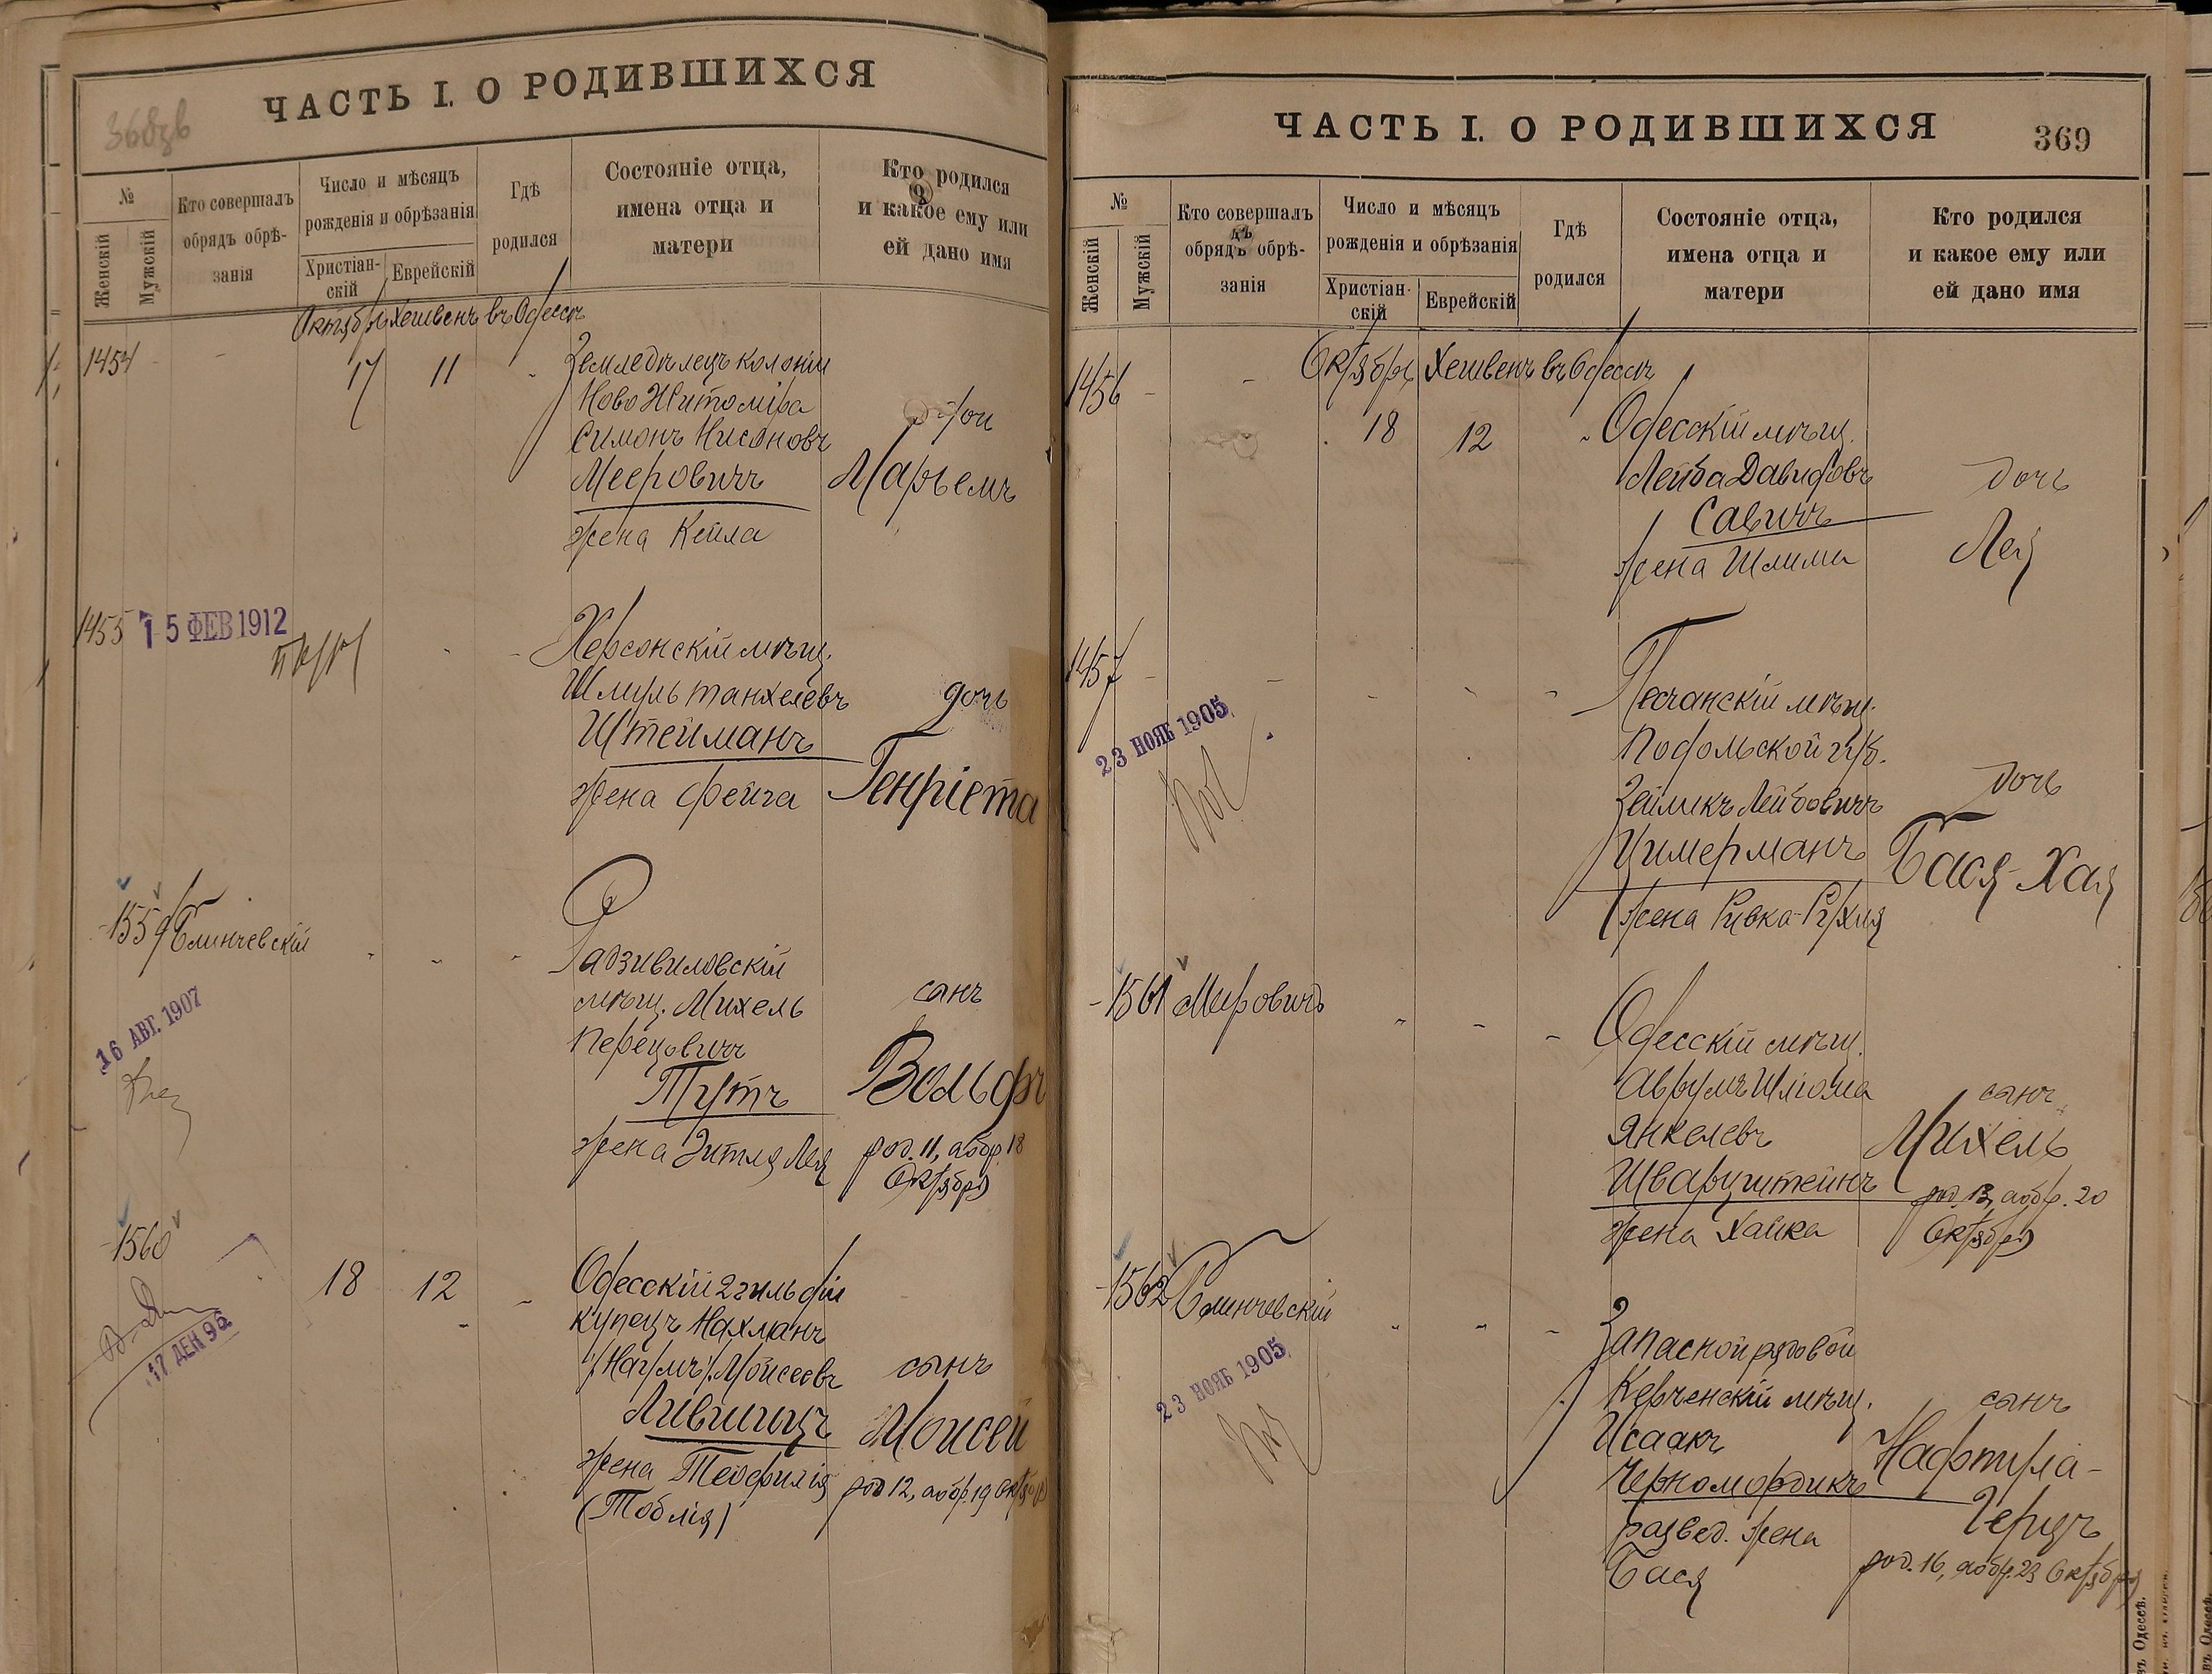 ЧАСТЬ I. О РОДИВШИХСЯ
368об
№
Женскій
Мужскій
Кто совершалъ
обрядъ обрѣ-
занія
Число и мѣсяцъ
рожденія и обрѣзанія
Христіан-
скій
Еврейскій
Гдѣ
родился
Состояніе отца,
имена отца и
матери
Кто родился
и какое ему или
ей дано имя
Октябрь Хешвенъ въ Одессѣ
1454 - - 17 11
Земледѣлецъ колоніи
Ново Житоміра
Симонъ Нисоновъ
Мееровичъ
жена Кейла
дочь
Марьемъ
1455
15 ФЕВ 1912
Херсонскій мѣщ.
Шмуль Танхелевъ
Штейманъ
жена Фейга
дочь
Генріета
1559 Блинчевскій
16 АВГ. 1907
Радзивиловскій
мѣщ. Михель
Перецовичъ
Тутъ
жена Зитля Лея
сынъ
Вольфъ
род. 11, а обр. 18
Октября
1560
17 ДЕК 96
18 12
Одесскій 2 гильдіи
купецъ Нахманъ
/:Наумъ:/ Мойсеевъ
Лившицъ
жена Теофилія
(Тоблія)
сынъ
Моисей
род 12, а обр. 19 Октября
ЧАСТЬ I. О РОДИВШИХСЯ
369
№
Женскій
Мужскій
Кто совершалъ
обрядъ обрѣ-
занія
Число и мѣсяцъ
рожденія и обрѣзанія
Христіан-
скій
Еврейскій
Гдѣ
родился
Состояніе отца,
имена отца и
матери
Кто родился
и какое ему или
ей дано имя
Октябрь Хешвенъ въ Одессѣ
1456 - - 18 12
Одесскій мѣщ.
Лейба Давидовъ
Савичъ
жена Шлима
дочь
Лея
1457
23 НОЯБ 1905
Песчанскій мѣщ.
Подольской губ.
Зейликъ Лейбовичъ
Цимерманъ
жена Ривка-Рухля
дочь
Бася-Хая
1561 Мировичъ
Одесскій мѣщ.
Аврумъ Шлюма
Янкелевъ
Шварцштейнъ
жена Хайка
сынъ
Михель
род. 13, а обр. 20
Октября
1562 Блинчевскій
23 НОЯБ 1905
Запасной рядовой
Керченскій мѣщ.
Исаакъ
Черномордикъ
развед. жена
Бася
сынъ
Нафтула-
Герцъ
род. 16, а обр. 23 Октября